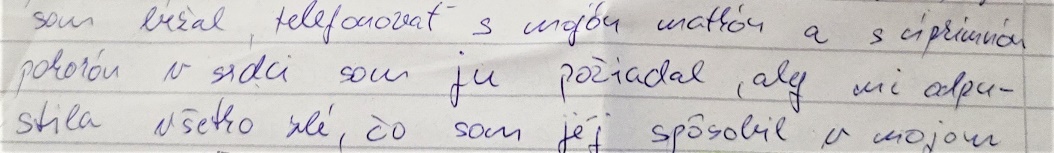 som bežal, telefonovať s mojón matkón a s úprimnón
pokorón v srdci som ju požiadal, aby mi odpu-
stila všetko zlé, čo som jej spôsobil v mojom